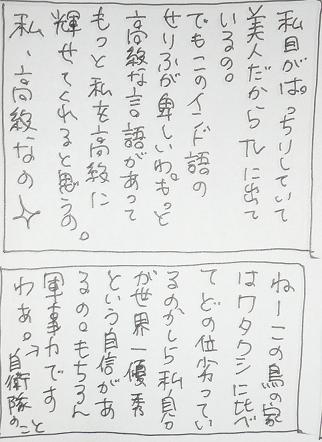 私目がぱっちりしていて
美人だからTVに出て
いるの。
でもこのインド語の
せりふが卑しいわ。もっと
高級な言語があって
もっと私を高級に
輝せてくれると思うの。
私、高級なの☆
ねーこの鳥の家
はワタクシに比べ
てどの位劣ってい
るのかしら私自分
が世界一優秀
という自信があ
るの。もちろん
軍事力です
わあ。
自衛隊のこと